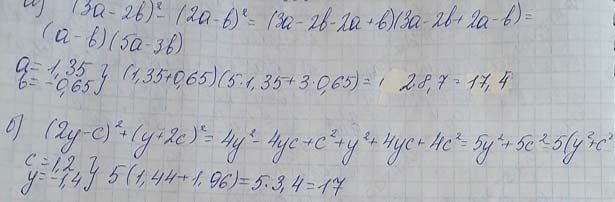 а) (3a-2b)²-(2a-b)²=(3a-2b-2a+b)(3a-2b+2a-b)=
(a-b)(5a-3b)
a=1,35
b=-0,65} (1,35+0,65)(5·1,35+3·0,65)= 2·8,7=17,4
б) (2y-c)²+(y+2c)²=4y²-4yc+c²+y²+4yc+4c²=5y²+5c²=5(y²+c²
c=1,2
y=-1,4} 5(1,44+1,96)=5·3,4=17